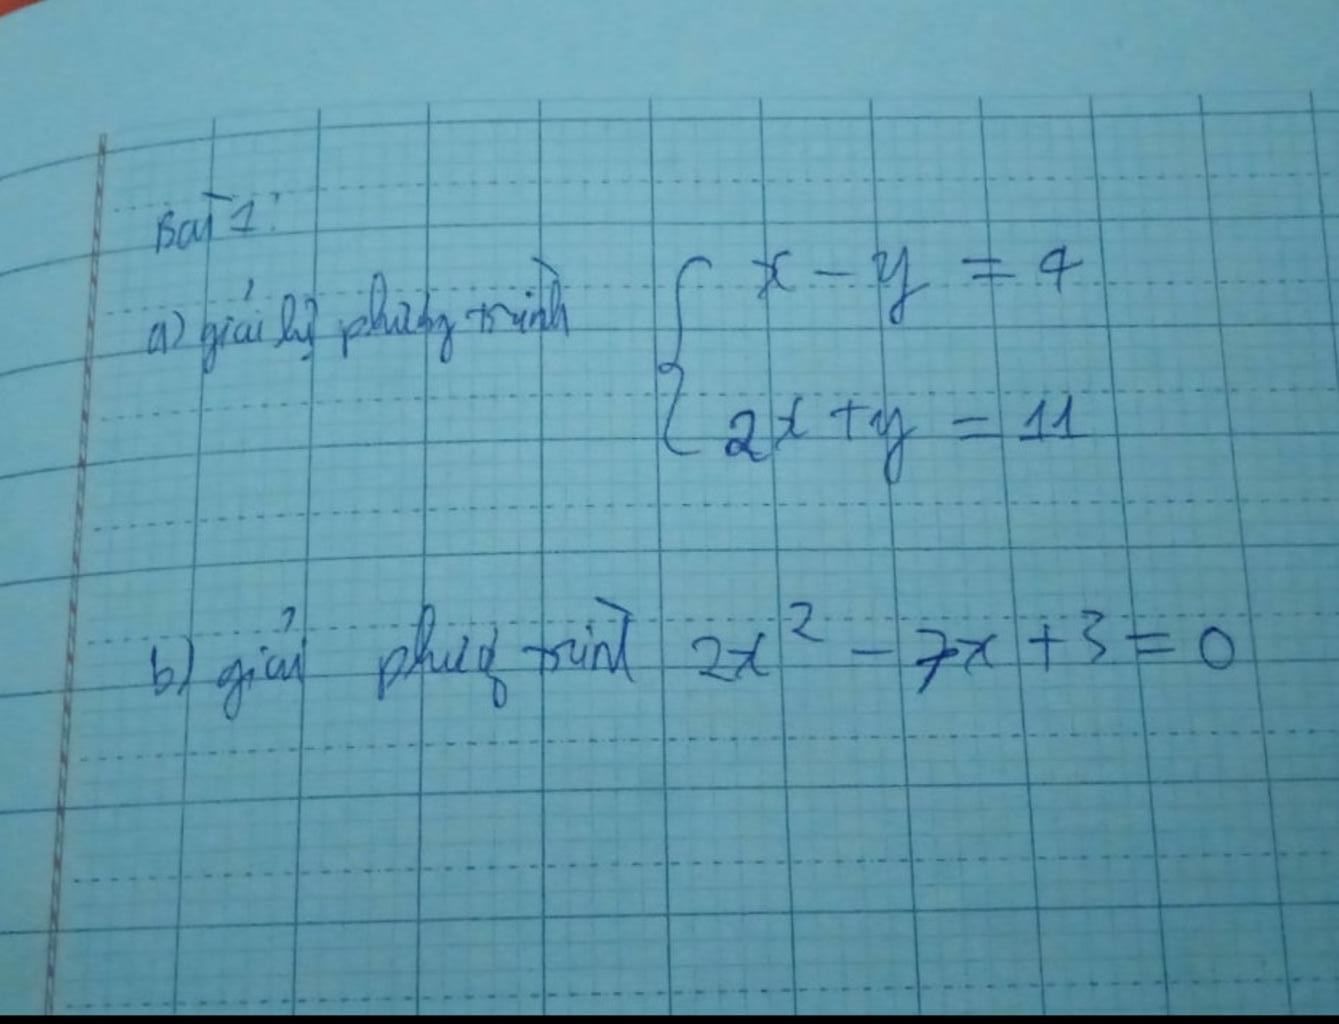 Bài 1:
a) giải hệ phương trình { x - y = 4
2x + y = 11
b) giải phương trình 2x² - 7x + 3 = 0